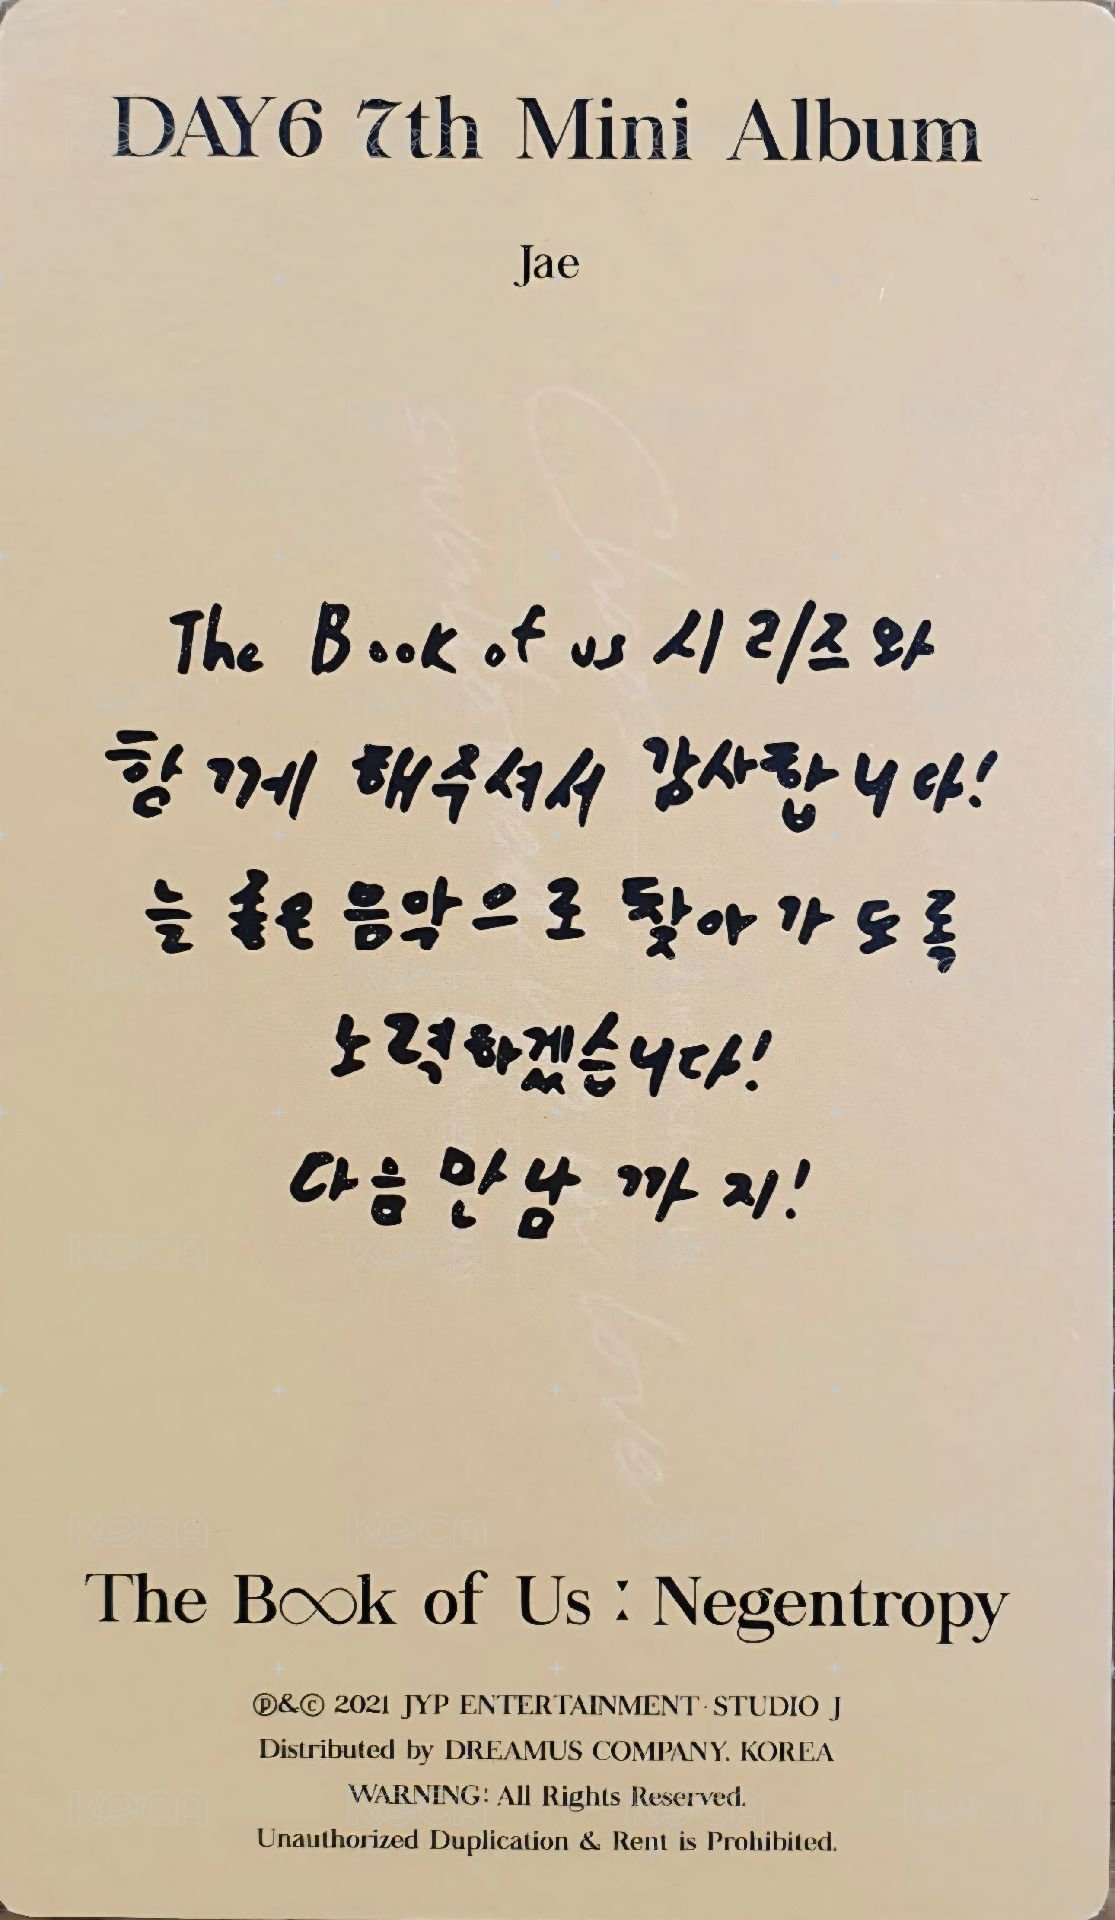 DAY6 7th Mini Album
Jae
The Book of us 시리즈와
함께 해주셔서 감사합니다!
늘 좋은 음악으로 찾아가도록
노력하겠습니다!
다음 만남까지!
The Book of Us : Negentropy
℗&© 2021 JYP ENTERTAINMENT·STUDIO J
Distributed by DREAMUS COMPANY. KOREA
WARNING: All Rights Reserved.
Unauthorized Duplication & Rent is Prohibited.
KOCA